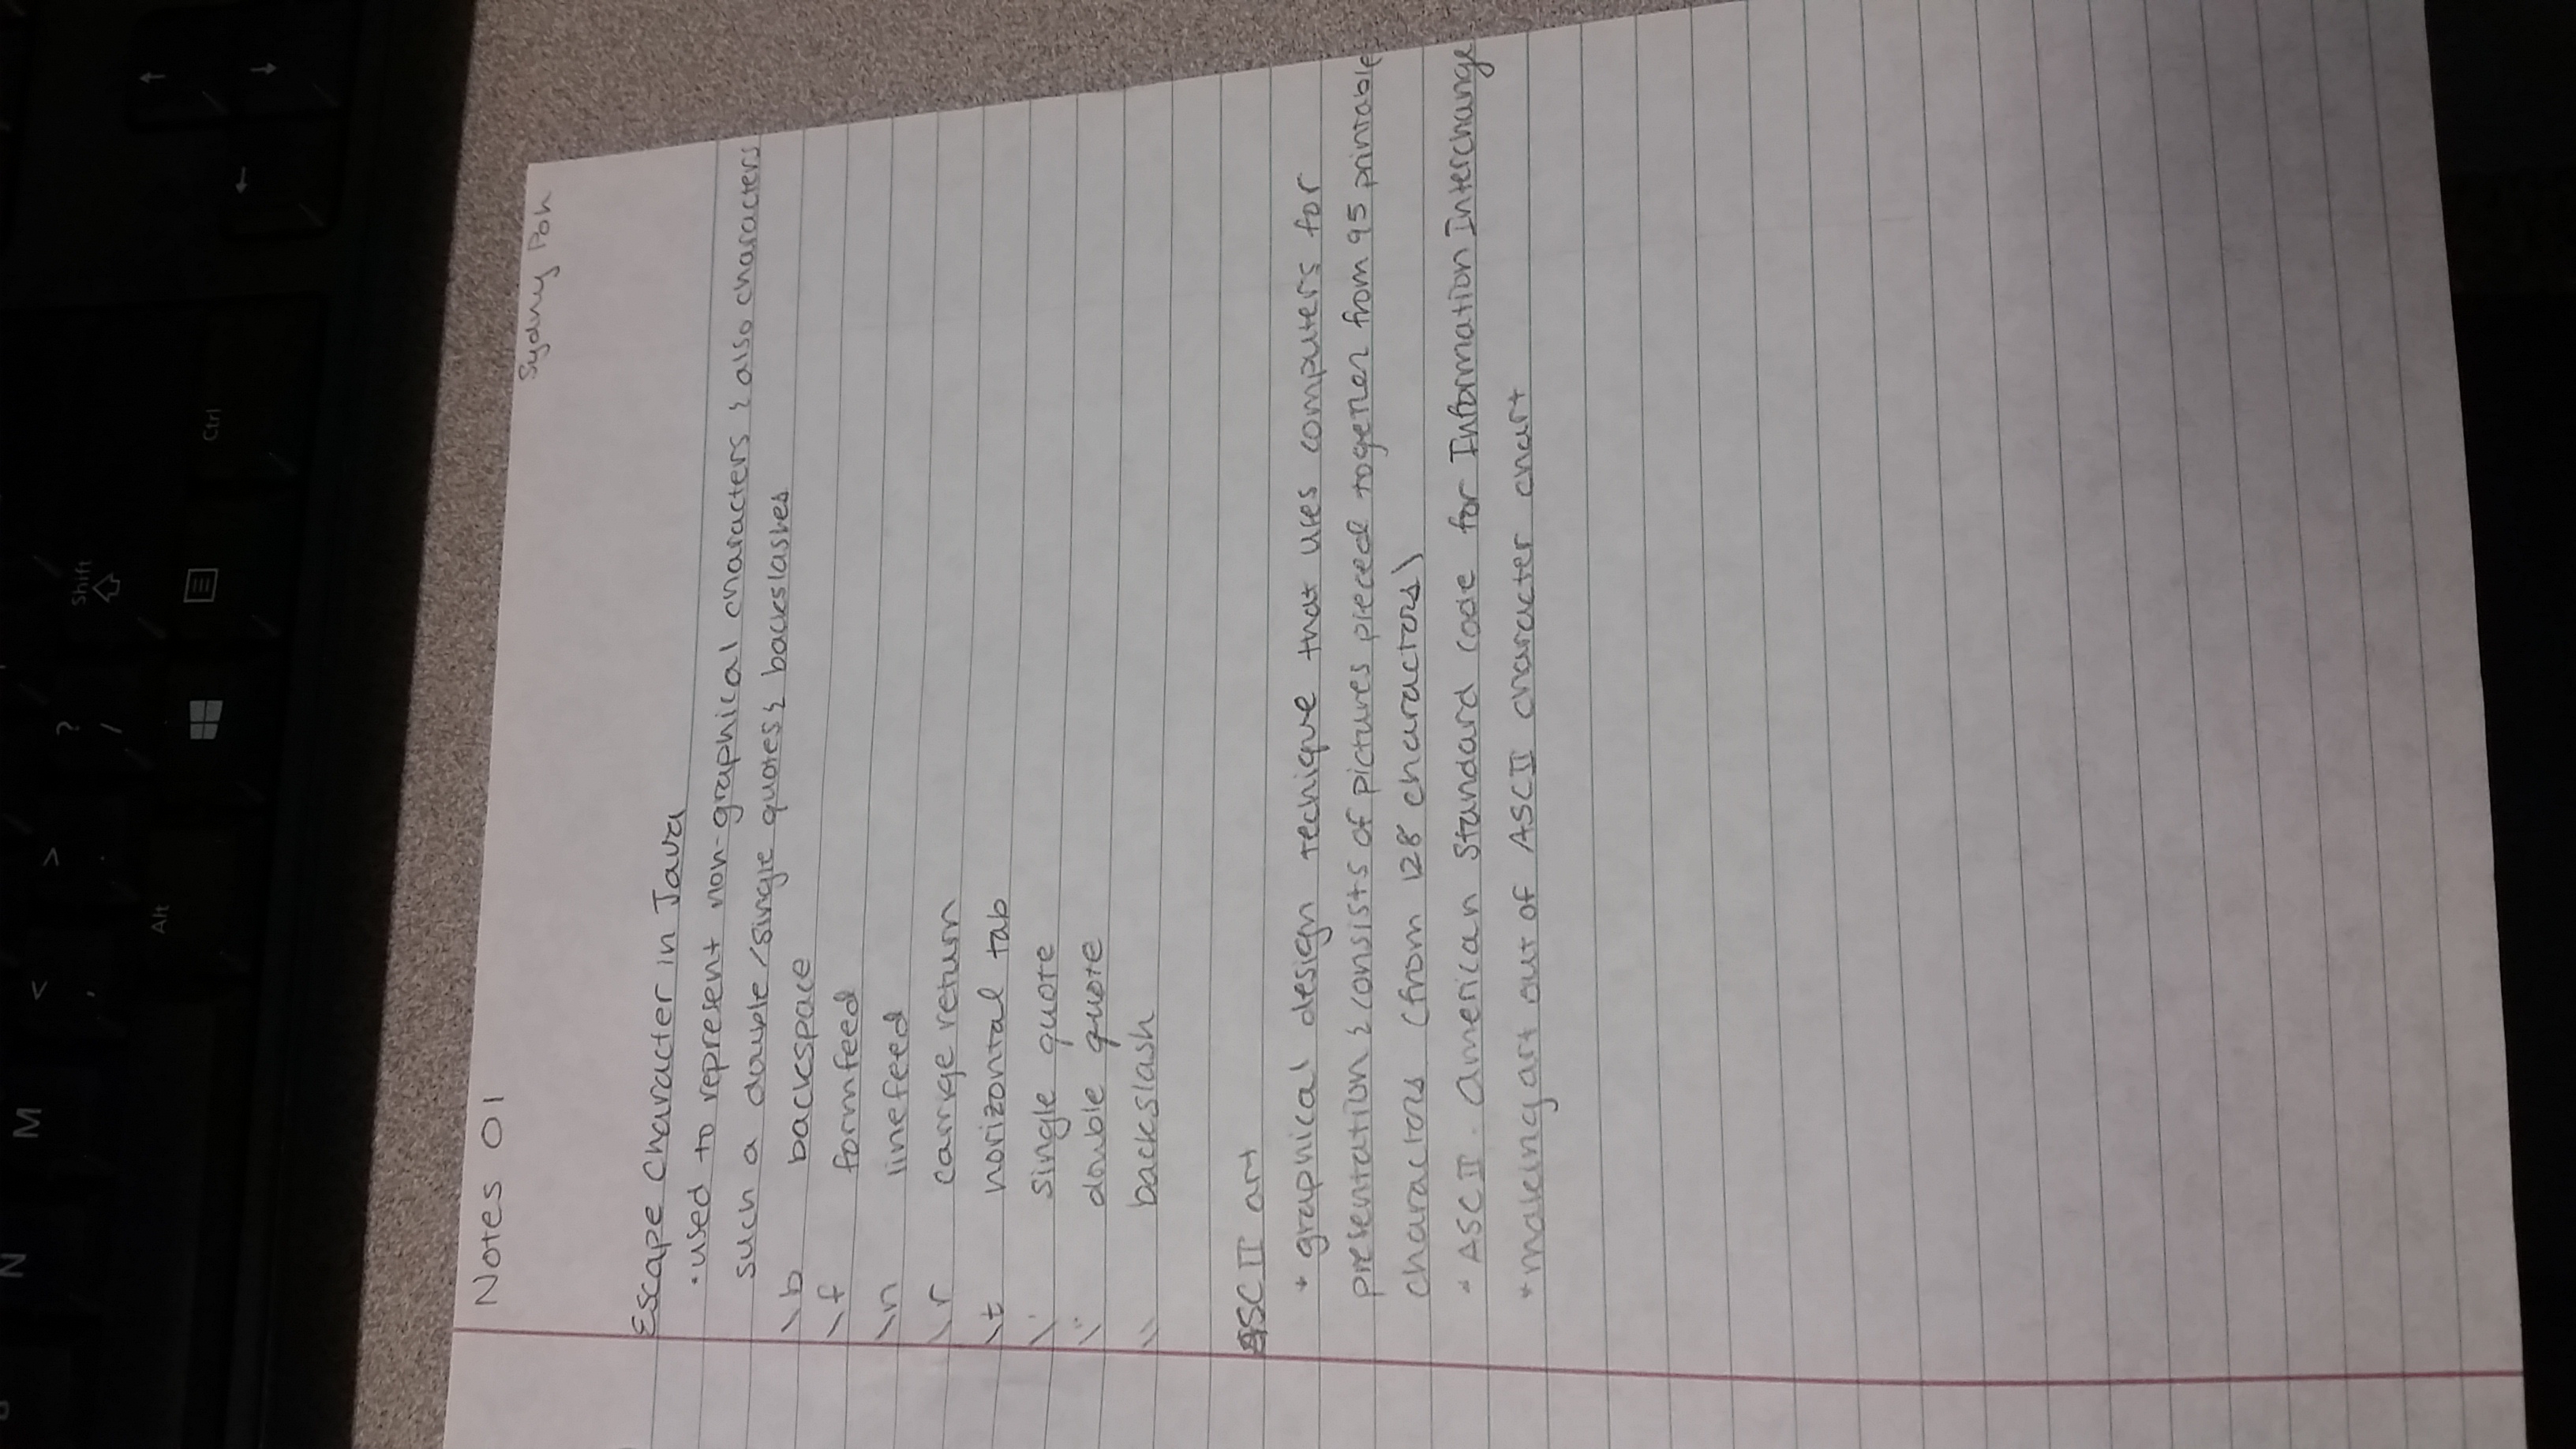 N
M
<
,
>
.
?
/
Shift
Alt
Ctrl
Notes 01
Sydny Poh
Escape Character in Java
•used to represent non-graphical characters & also characters
such a double/single quotes & backslashes
\b backspace
\f formfeed
\n linefeed
\r carrige return
\t horizontal tab
\' single quote
\" double quote
\\ backslash
ASCII art
• graphical design techique that uses computers for
presentation & consists of pictures pieced together from 95 printable
charactors (from 128 charactors)
• ASCII. American Standard Code for Information Interchange
•making art out of ASCII character chart